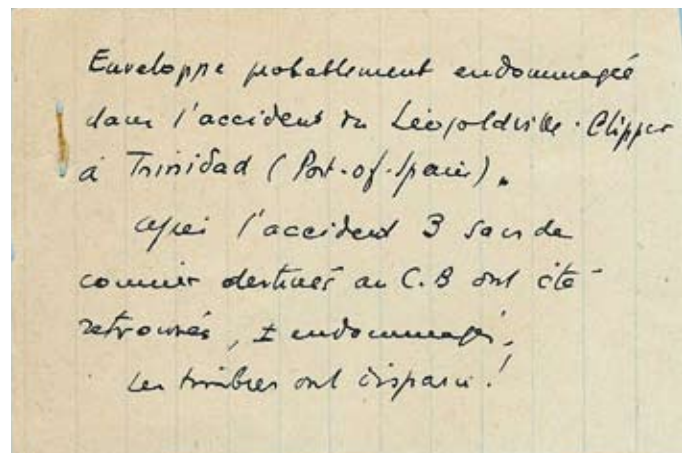 Enveloppe probablement endommagée
dans l'accident du Léopoldville-Clipper
à Trinidad (Port-of-Spain).
après l'accident 3 sacs de
courrier destinés au C.B ont été
retrouvés, ± endommagés.
Les timbres ont disparu !